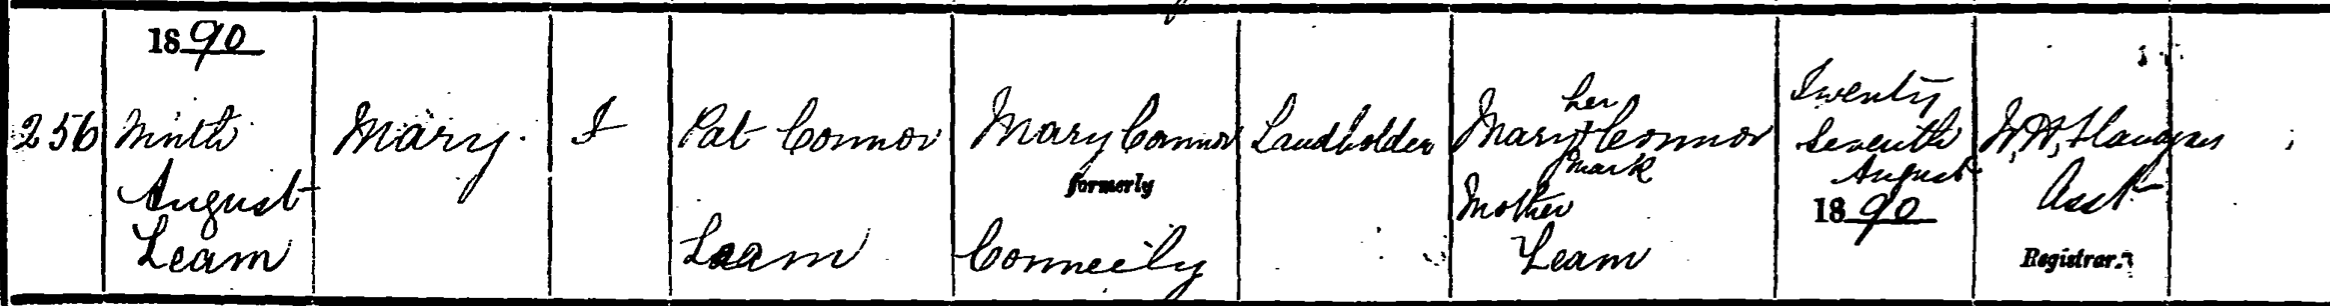 256
1890
Ninth
August
Leam
Mary
F
Pat Connor
Leam
Mary Connor
formerly
Conneely
Landholder
her
Mary X Connor
mark
Mother
Leam
Twenty
Seventh
August
1890
Asst
Registrar.